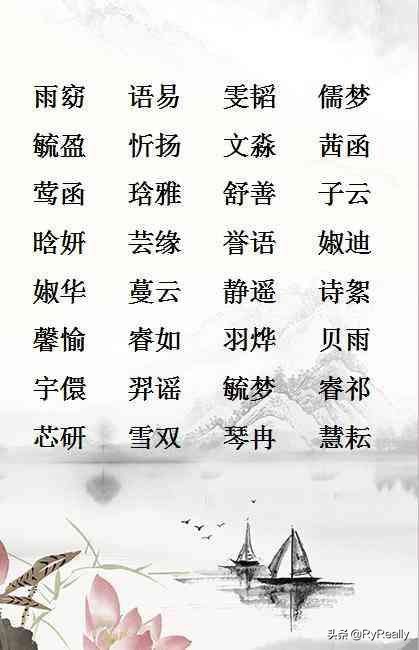 雨窈 语易 雯韬 儒梦
毓盈 忻扬 文淼 茜函
莺函 琀雅 舒善 子云
晗妍 芸缘 誉语 婌迪
婌华 蔓云 静遥 诗絮
馨愉 睿如 羽烨 贝雨
宇儇 羿谣 毓梦 睿祁
芯研 雪双 琴冉 慧耘
头条 @RyReally